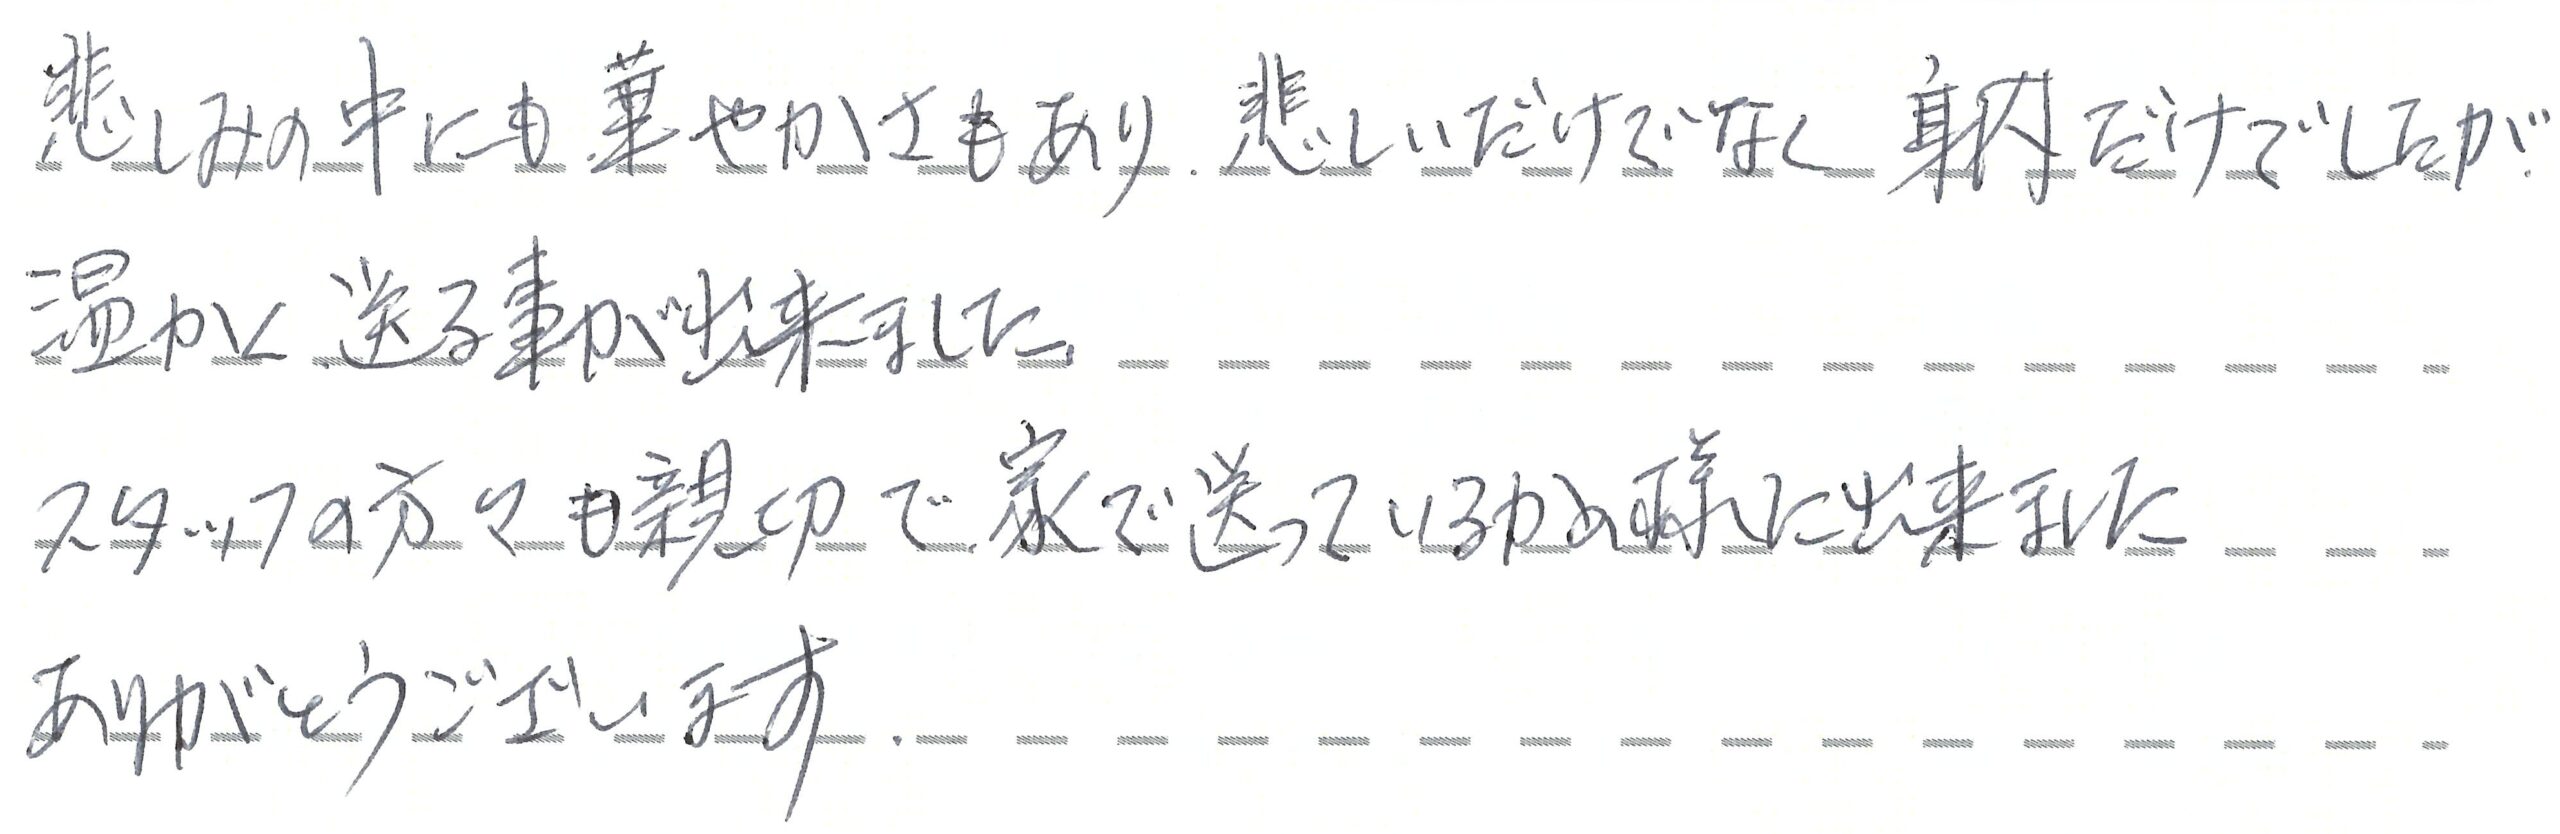 悲しみの中にも華やかさもあり、悲しいだけでなく身内だけでしたが、
温かく送る事が出来ました。
スタッフの方々も親切で、家で送っているかの様に出来ました
ありがとうございます。